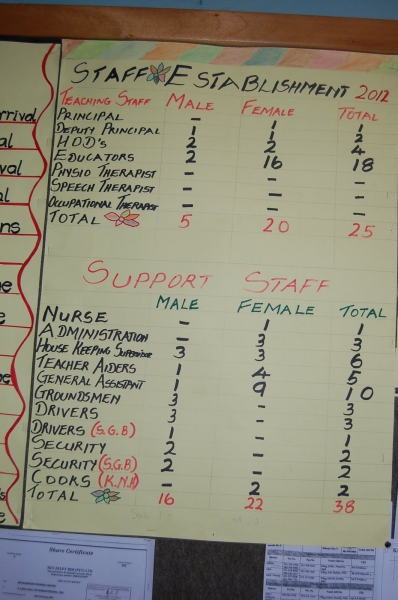 STAFF ESTABLISHMENT 2012
TEACHING STAFF MALE FEMALE TOTAL
PRINCIPAL - 1 1
DEPUTY PRINCIPAL 1 1 2
H.O.D's 2 2 4
EDUCATORS 2 16 18
PHYSIO THERAPIST - - -
SPEECH THERAPIST - - -
OCCUPATIONAL THERAPIST - - -
TOTAL 5 20 25
SUPPORT STAFF
MALE FEMALE TOTAL
NURSE - 1 1
ADMINISTRATION - 3 3
HOUSE KEEPING SUPERVISOR 3 3 6
TEACHER AIDERS 1 4 5
GENERAL ASSISTANT 1 9 10
GROUNDSMEN 3 - 3
DRIVERS 3 - 3
DRIVERS (S.G.B) 1 - 1
SECURITY 2 - 2
SECURITY (S.G.B) 2 - 2
COOKS (K.N.H) - 2 2
TOTAL 16 22 38
Share Certificate